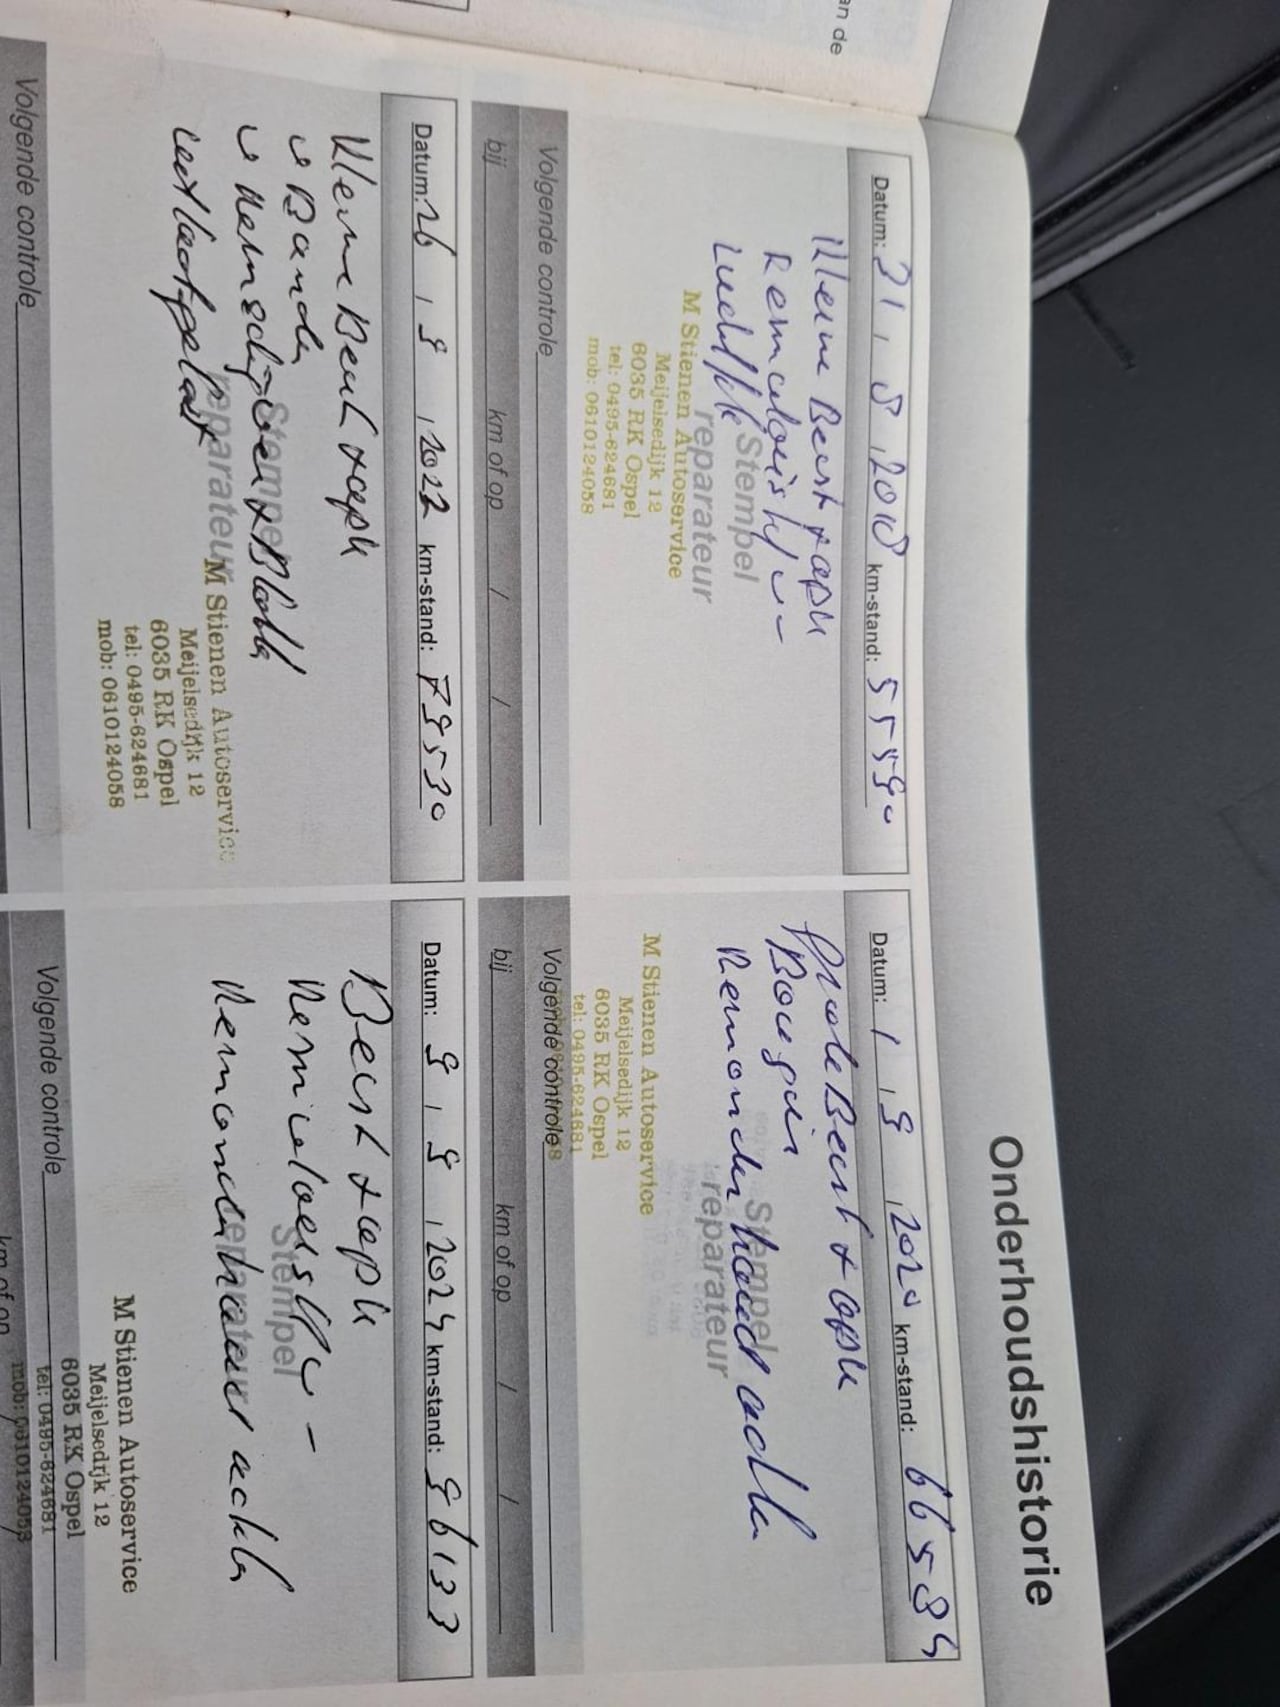 an de
Onderhoudshistorie
Datum: 31 / 8 / 2018 km-stand: 55590
Kleine Beurt + apk
Remvloeistof
Stempel
reparateur
M Stienen Autoservice
Meijelsedijk 12
6035 RK Ospel
tel: 0495-624681
mob: 0610124058
Volgende controle
bij km of op / /
Datum: 1 / 9 / 2020 km-stand: 66594
Grote Beurt + apk
Bougies
Remmen
Stempel
reparateur
M Stienen Autoservice
Meijelsedijk 12
6035 RK Ospel
tel: 0495-624681
Volgende controle
bij km of op / /
Datum: 26 / 9 / 2022 km-stand: 79530
Kleine Beurt + apk
Banden
Remschijven + Blokken
Stempel
reparateur
M Stienen Autoservice
Meijelsedijk 12
6035 RK Ospel
tel: 0495-624681
mob: 0610124058
Volgende controle
Datum: 9 / 9 / 2024 km-stand: 96133
Beurt + apk
Remvloeistof
Stempel
M Stienen Autoservice
Meijelsedijk 12
6035 RK Ospel
tel: 0495-624681
mob: 0610124058
Volgende controle
km of op